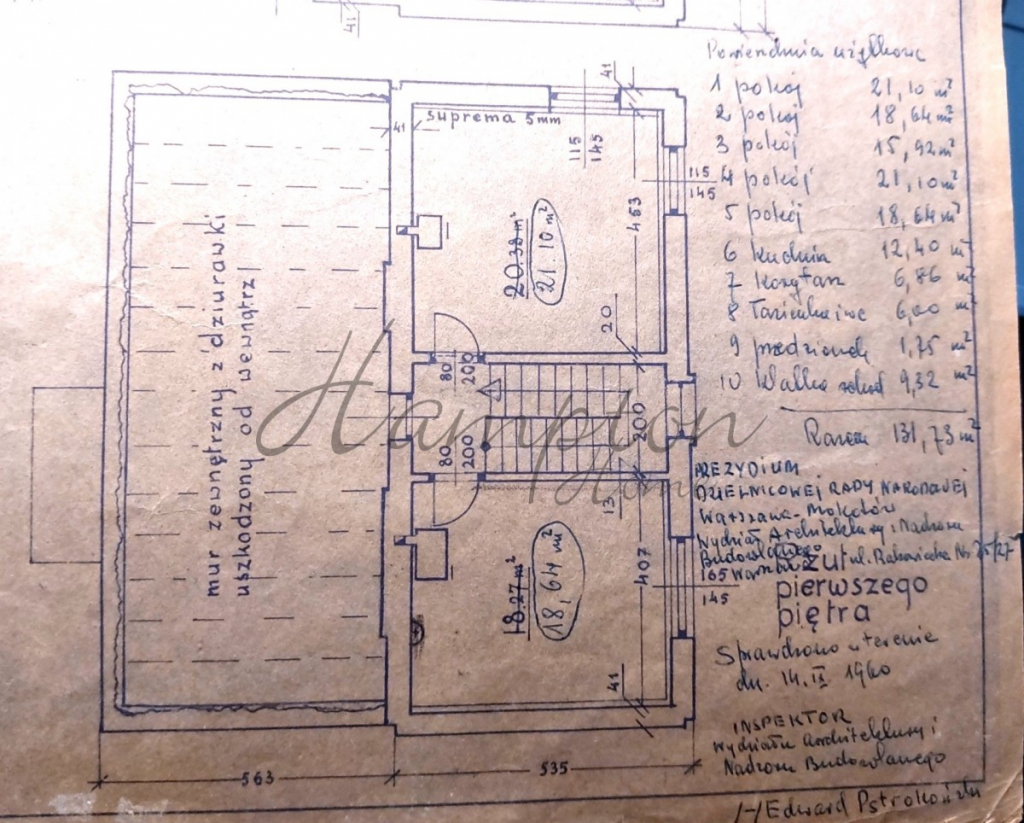 41
Pomieszczenia użytkowe
1 pokój 21,10 m²
2 pokój 18,64 m²
3 pokój 15,92 m²
4 pokój 21,10 m²
5 pokój 18,64 m²
6 kuchnia 12,40 m²
7 korytarz 6,86 m²
8 Łazienka i wc 6,00 m²
9 przedsionek 1,75 m²
10 Klatka schod 9,32 m²
Razem 131,73 m²
41
suprema 5mm
41
115
145
115
145
453
20.38 m²
21.10 m²
20
mur zewnętrzny z dziurawki
uszkodzony od wewnątrz
80
200
200
80
200
13
Hampton
Home
18.27 m²
18,64 m²
407
165
145
41
PREZYDIUM
DZIELNICOWEJ RADY NARODOWEJ
Warszawa-Mokotów
Wydział Architektury i Nadzoru
Budowlanego
Warszawa ul. Rakowiecka Nr 25/27
rzut
pierwszego
piętra
Sprawdzono w terenie
dn. 14.II 1960
INSPEKTOR
Wydziału Architektury i
Nadzoru Budowlanego
/-/ Edward
563
535